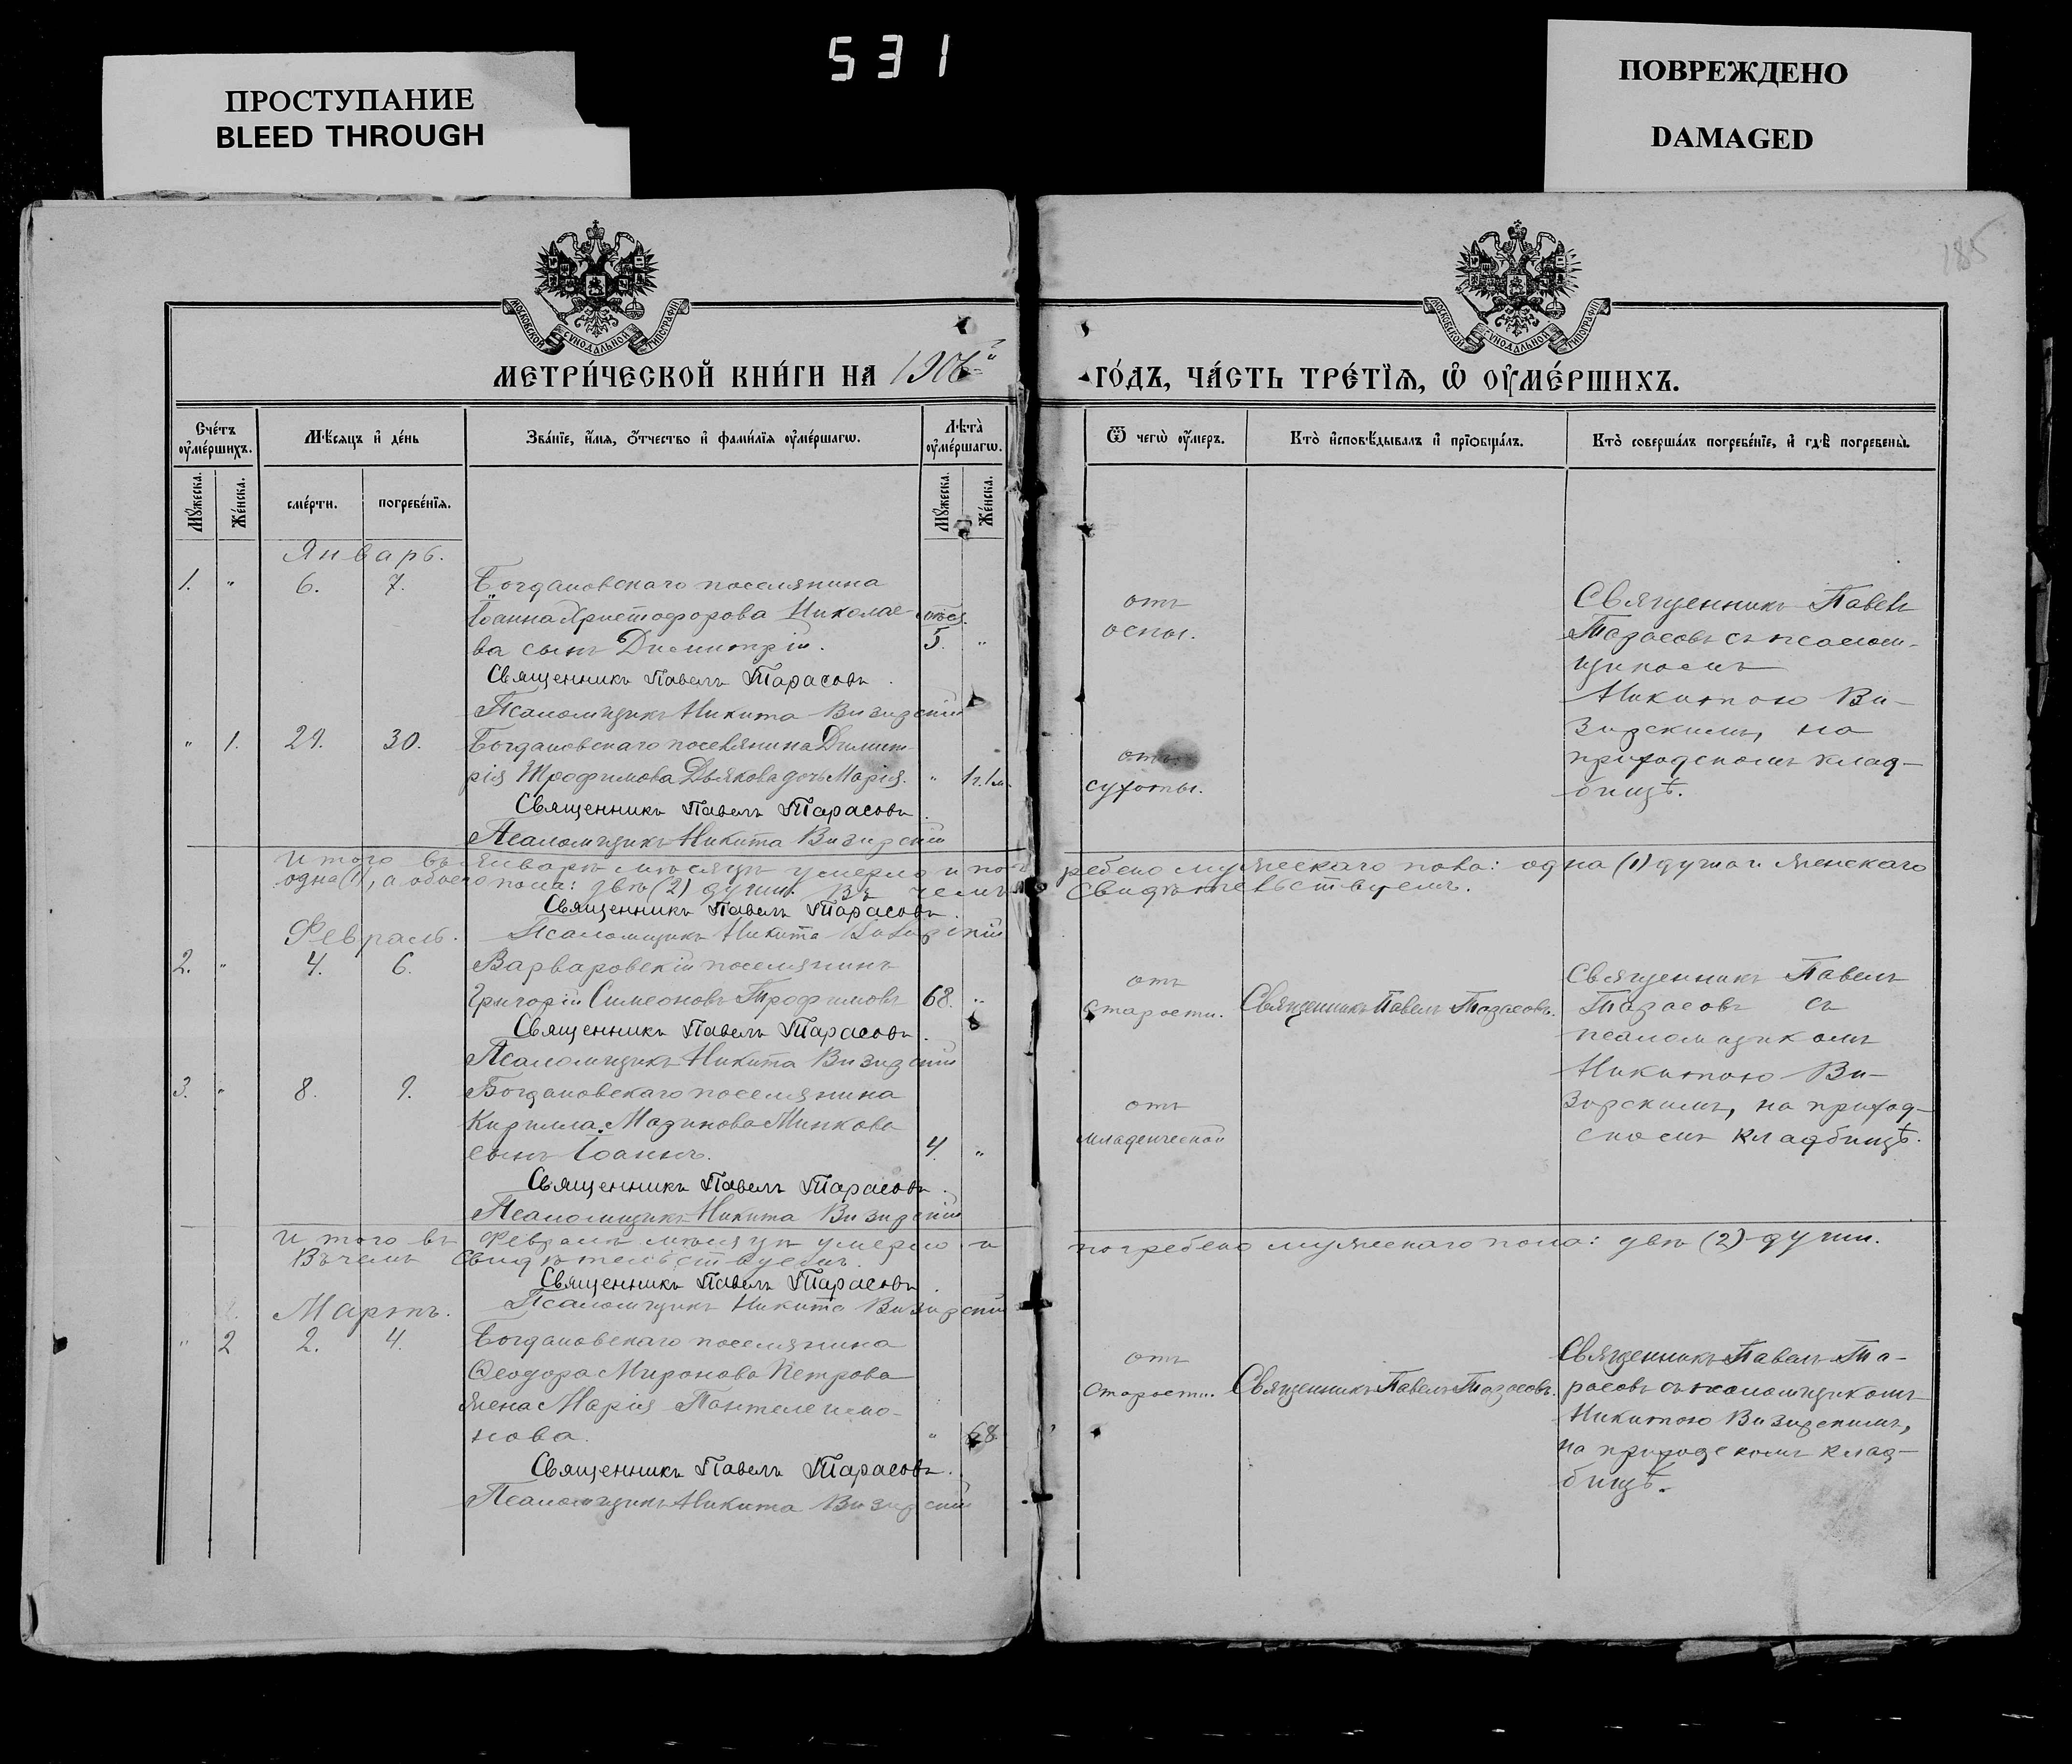 531
ПРОСТУПАНИЕ
BLEED THROUGH
ПОВРЕЖДЕНО
DAMAGED
185
МОСКОВСКОЙ СѴНОДАЛЬНОЙ ТИПОГРАФІИ
МОСКОВСКОЙ СѴНОДАЛЬНОЙ ТИПОГРАФІИ
МЕТРИ́ЧЕСКОЙ КНИ́ГИ НА 1906
ГО́ДЪ, ЧА́СТЬ ТРЕ́ТЇѦ, Ѽ ОУ҆МЕ́РШИХЪ.
Сче́тъ оу҆ме́ршихъ.
Мѣ́сяцъ и҆ де́нь
Зва́нїе, и҆́мѧ, ѻ҆́тчество и҆ фами́лїѧ оу҆ме́ршагѡ.
Лѣ́та̀ оу҆ме́ршагѡ.
Ѿ чегѡ̀ оу҆́меръ.
Кто̀ и҆сповѣ́дывалъ и҆ прїѡбща́лъ.
Кто̀ соверша́лъ погребе́нїе, и҆ гдѣ̀ погребены̀.
Мꙋ́жеска.
Же́нска.
сме́рти.
погребе́нїѧ.
Мꙋ́жеска.
Же́нска.
Январь.
1. " 6. 7. Богдановскаго поселянина
Іоанна Христофорова Николае-
ва сынъ Димитрій. 5. "
Священникъ Павелъ Тарасовъ.
Псаломщикъ Никита Визирскій
отъ
оспы.
Священникъ Павелъ
Тарасовъ съ псалом-
щикомъ
Никитою Ви-
зирскимъ, на
приходскомъ клад-
бищѣ.
" 1. 29. 30. Богдановскаго поселянина Димит-
рія Трофимова Дьякова дочь Марія. " 1 г. 1 м.
Священникъ Павелъ Тарасовъ.
Псаломщикъ Никита Визирскій
отъ
сухоты.
Итого въ январѣ мѣсяцѣ умерло и погребено мужескаго пола: одна (1) душа и женскаго
одна (1), а обоего пола: двѣ (2) души. Въ чемъ свидѣтельствуемъ.
Священникъ Павелъ Тарасовъ.
Псаломщикъ Никита Визирскій
Февраль.
2. " 4. 6. Варваровскій поселянинъ
Григорій Симеоновъ Трофимовъ 68. "
Священникъ Павелъ Тарасовъ.
Псаломщикъ Никита Визирскій
отъ
старости. Священникъ Павелъ Тарасовъ.
Священникъ Павелъ
Тарасовъ съ
псаломщикомъ
Никитою Ви-
зирскимъ, на приход-
скомъ кладбищѣ.
3. " 8. 9. Богдановскаго поселянина
Кирилла Маринова Минкова
сынъ Іоаннъ. 4. "
Священникъ Павелъ Тарасовъ.
Псаломщикъ Никита Визирскій
отъ
младенческой
Итого въ Февралѣ мѣсяцѣ умерло и погребено мужескаго пола: двѣ (2) души.
Въ чемъ свидѣтельствуемъ.
Священникъ Павелъ Тарасовъ.
Псаломщикъ Никита Визирскій
Мартъ.
" 2 2. 4. Богдановскаго поселянина
Ѳеодора Миронова Петрова
жена Марія Пантелеимо-
нова. " 68.
Священникъ Павелъ Тарасовъ.
Псаломщикъ Никита Визирскій
отъ
старости. Священникъ Павелъ Тарасовъ.
Священникъ Павелъ Та-
расовъ съ псаломщикомъ
Никитою Визирскимъ,
на приходскомъ клад-
бищѣ.